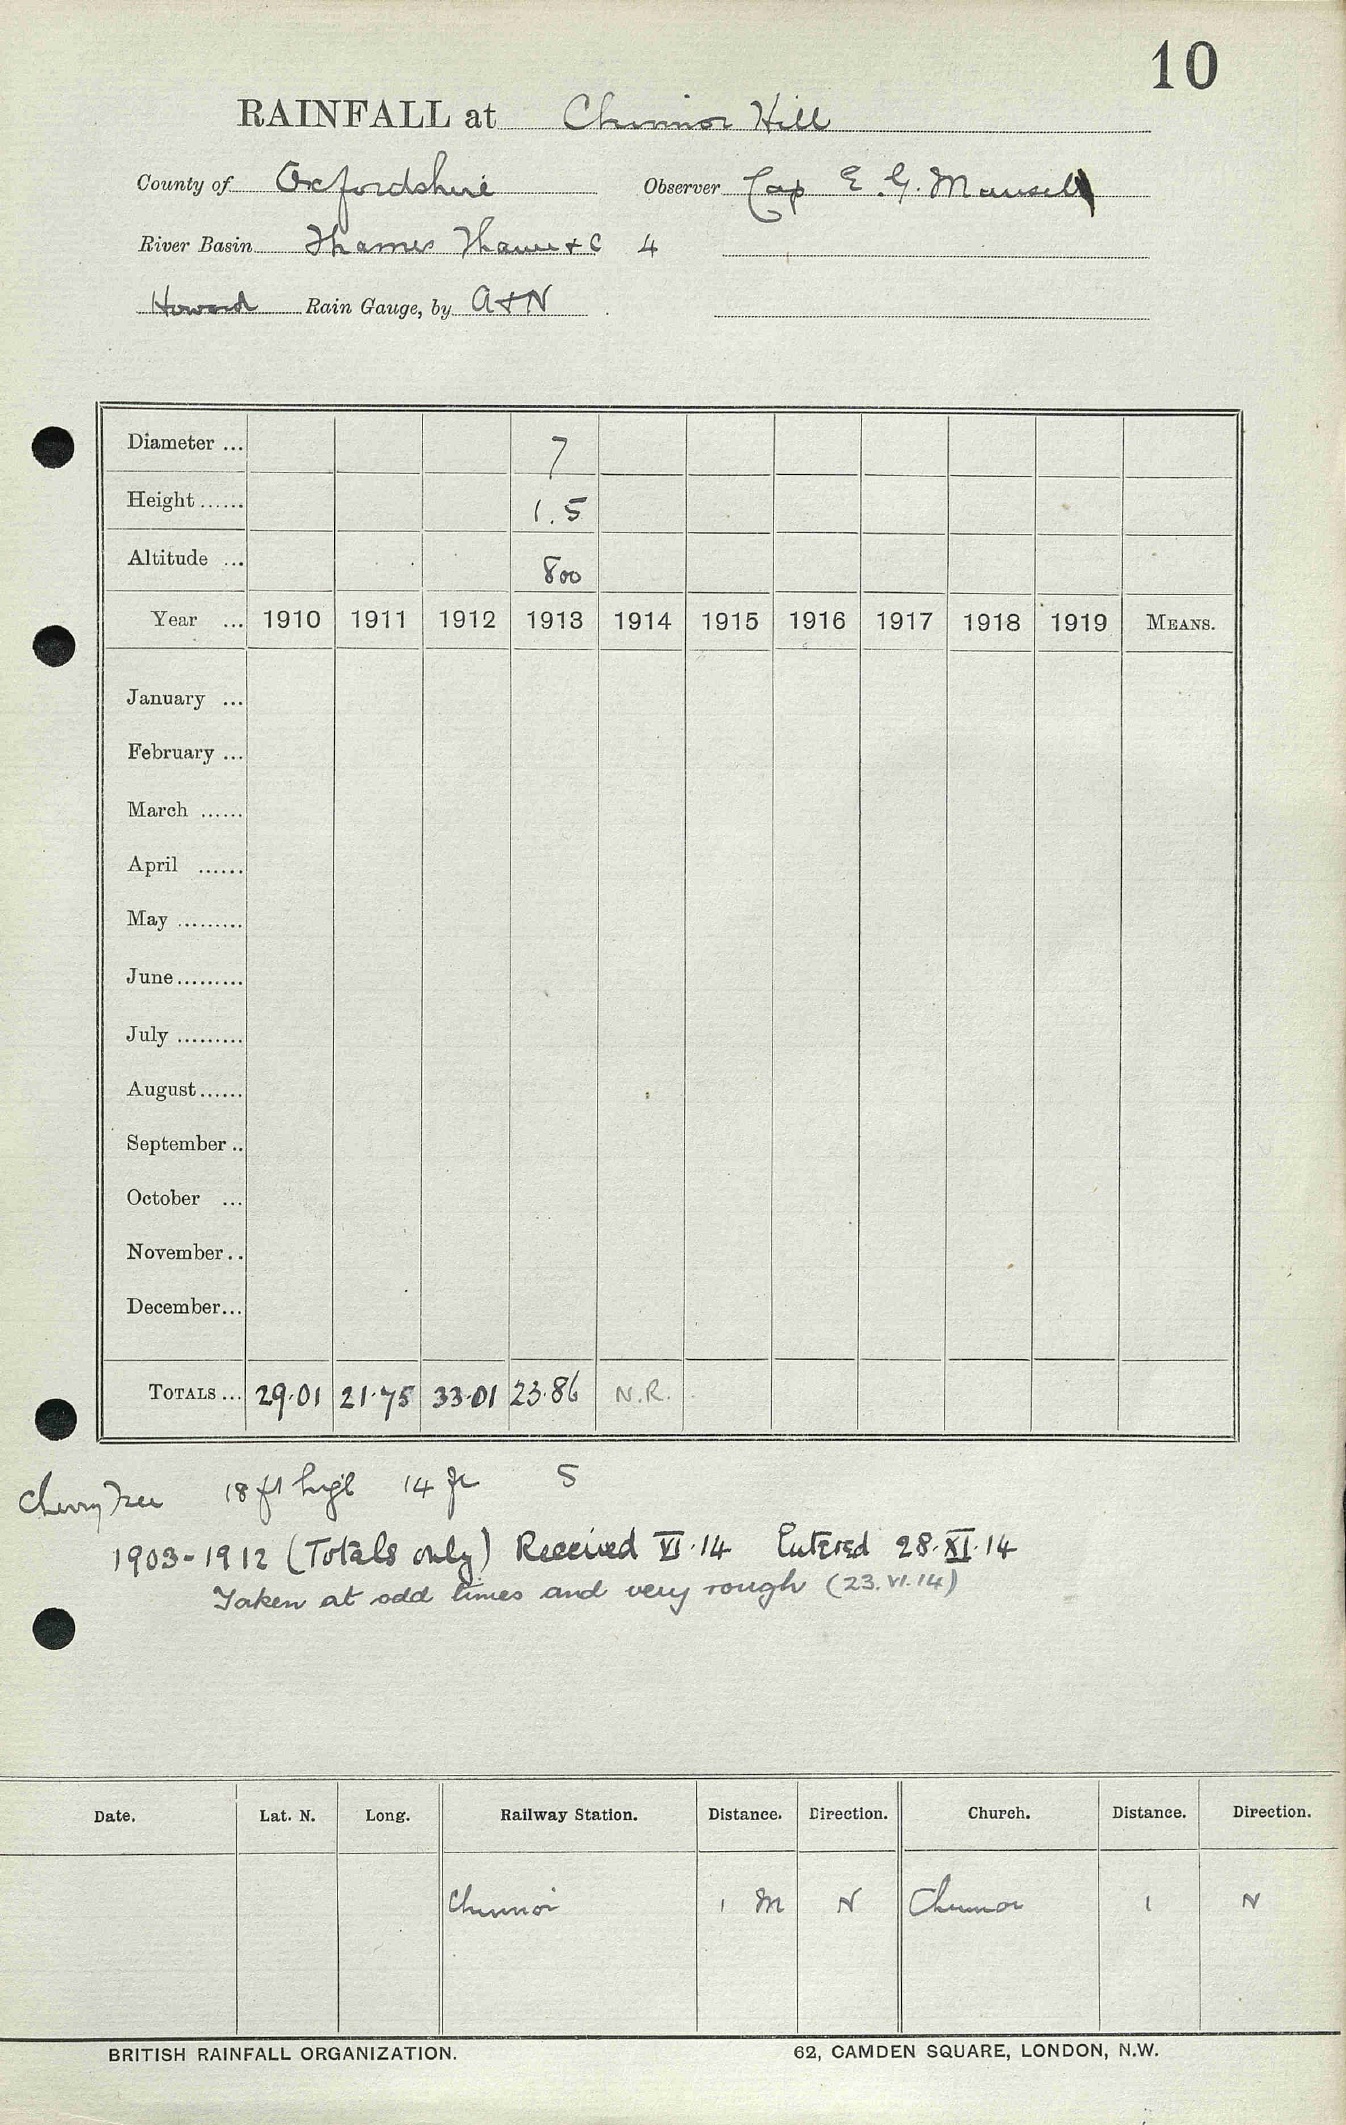 10
RAINFALL at Chinnor Hill
County of Oxfordshire Observer Cap E. G. Mansell
River Basin Thames Thame + C 4
Howard Rain Gauge, by A+N
Diameter ... 7
Height ...... 1.5
Altitude ... 800
Year ... 1910 1911 1912 1913 1914 1915 1916 1917 1918 1919 MEANS.
January ...
February ...
March ......
April ......
May .........
June .........
July .........
August ......
September ..
October ...
November ..
December ...
TOTALS ... 29.01 21.75 33.01 23.86 N.R.
Cherry Tree 18 ft high 14 ft S
1903-1912 (Totals only) Received VI.14 Entered 28.XI.14
Taken at odd times and very rough (23.VI.14)
Date. Lat. N. Long. Railway Station. Distance. Direction. Church. Distance. Direction.
Chinnor 1 M N Chinnor 1 N
BRITISH RAINFALL ORGANIZATION. 62, CAMDEN SQUARE, LONDON, N.W.